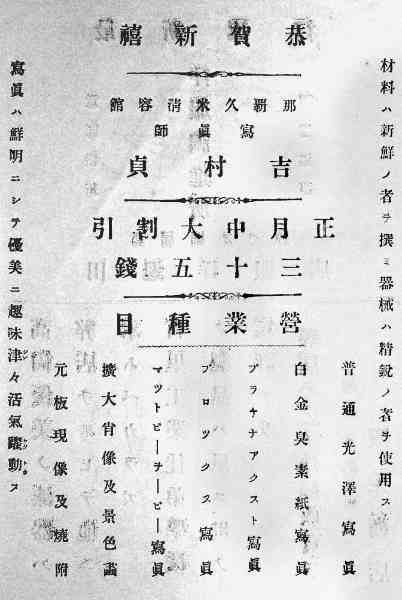 恭賀新禧
那覇久米清容館
寫眞師
吉村貞
正月中大割引
三十五錢
營業種目
材料ハ新鮮ノ者ヲ撰ミ器械ハ精鋭ノ者ヲ使用ス
普通光澤寫眞
白金臭素紙寫眞
プラヤナアクスト寫眞
ブロツクス寫眞
マツトピーチーピー寫眞
擴大肖像及景色畵
元板現像及燒附
寫眞ハ鮮明ニシテ優美ニ趣味津々活氣躍動ス